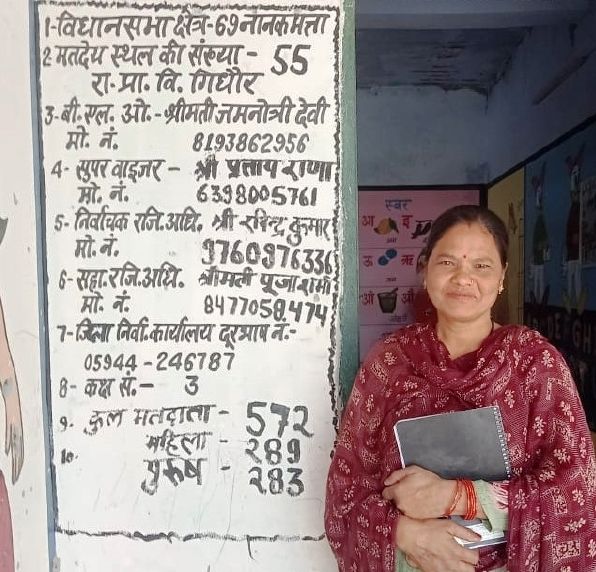 1-विधानसभा क्षेत्र-69नानकमत्ता
2 मतदेय स्थल की संख्या- 55
रा. प्रा. वि. गिधौर
3-बी. एल. ओ. - श्रीमती जमनोत्री देवी
मो. नं. 8193862956
4- सुपर वाइजर - श्री प्रताप राणा
मो. नं. 6398005761
5- निर्वाचक रजि.अधि. श्री रविन्द्र कुमार
मो. नं. 9760976336
6- सहा. रजि.अधि. श्रीमती पूजा शर्मा
मो. नं. 8477058474
7- जिला निर्वा. कार्यालय दूरभाष नं.-
05944-246787
8- कक्ष सं.- 3
9. कुल मतदाता - 572
10. महिला - 289
पुरूष - 283
स्वर
अ इ
ऊ ऋ
ओ औ